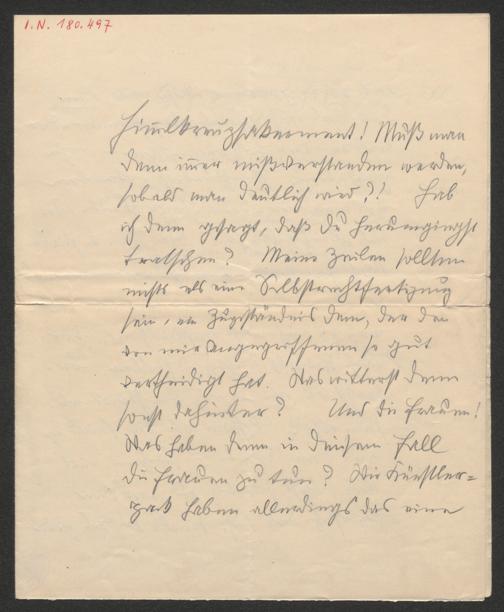 I. N. 180.497
Himmlkreuzsakerment! Muß man
denn immer mißverstanden werden,
sobald man deutlich wird?! Hab
ich denn gesagt, daß Du herumgingst
tratschen? Meine Zeilen sollten
nichts als eine Selbstrechtfertigung
sein, ein Zugeständnis dem, der den
von mir Angegriffenen so gut
vertheidigt hat. Was witterst denn
sonst dahinter? Und die Frauen!
Was haben denn in diesem Fall
die Frauen zu tun? Wir Künstler=
pack haben allerdings das eine